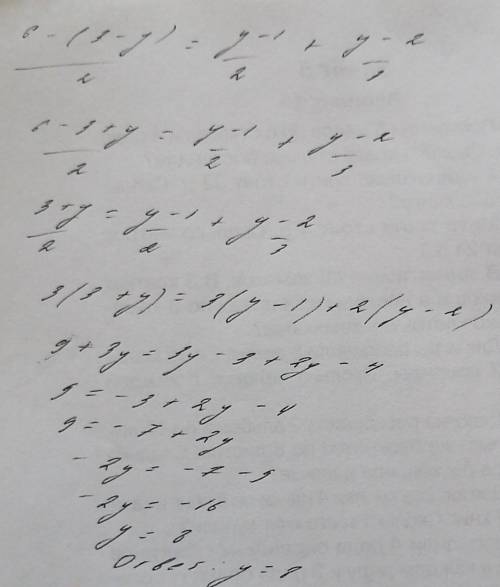 6 - (3 - y) / 2 = y - 1 / 2 + y - 2 / 3
6 - 3 + y / 2 = y - 1 / 2 + y - 2 / 3
3 + y / 2 = y - 1 / 2 + y - 2 / 3
3(3 + y) = 3(y - 1) + 2(y - 2)
9 + 3y = 3y - 3 + 2y - 4
9 = -3 + 2y - 4
9 = -7 + 2y
-2y = -7 - 9
-2y = -16
y = 8
Ответ: y = 8